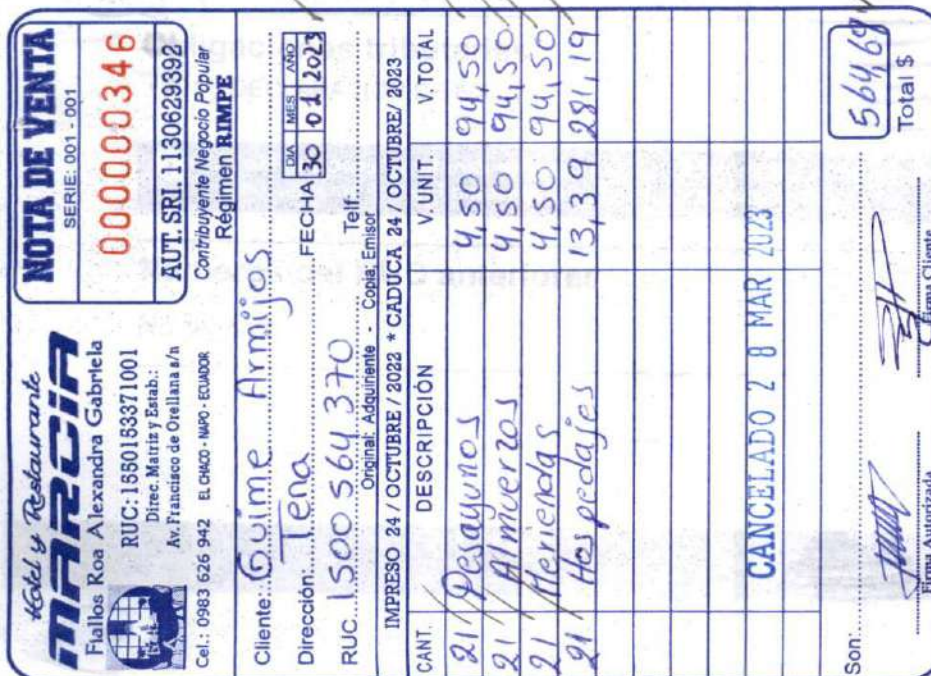 Hotel y Restaurante
MARCIA
Fiallos Rea Alexandra Gabriela
RUC: 1550153371001
Direc. Matriz y Estab.
Av. Francisco de Orellana s/n
Cel.: 0983 626 942 EL CHACO - NAPO - ECUADOR
NOTA DE VENTA
SERIE: 001 - 001
000000346
AUT. SRI. 1130629392
Contribuyente Negocio Popular
Régimen RIMPE
Cliente: Guime Armijos
Dirección: Tena FECHA DIA MES AÑO 30 01 2023
RUC. 1500564370 Telf.
Original: Adquiriente - Copia; Emisor
IMPRESO 24 / OCTUBRE / 2022 * CADUCA 24 / OCTUBRE/ 2023
CANT. DESCRIPCIÓN V. UNIT V. TOTAL
21 Desayunos 4,50 94,50
21 Almuerzos 4,50 94,50
21 Meriendas 4,50 94,50
21 Hospedajes 13,39 281,19
CANCELADO 2 8 MAR 2023
Son: 564,69
Total $
Firma Autorizada Firma Cliente